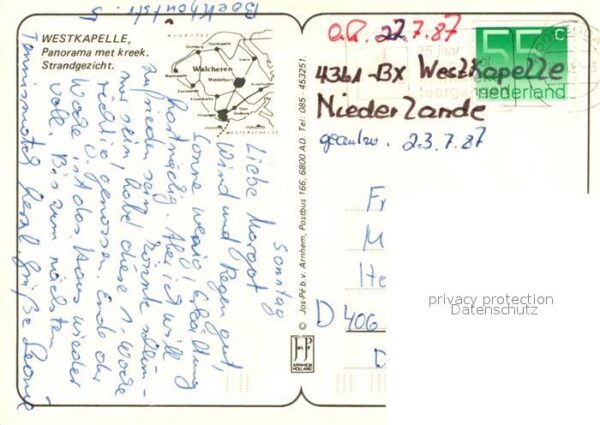 WESTKAPELLE,
Panorama met kreek.
Strandgezicht.
Walcheren
Middelburg
Sonntag
Liebe Margot
Wind und Regen gut,
Sonne wenig! Erholung
hartnäckig. Aber ich will
zufrieden sein, könnte schlim-
mer sein, habe diese 1. Woche
richtig genossen. Ende der
Woche ist das Haus wieder
voll. Bis zum nächsten
Tennismatch herzl. Grüße
© Jos-Pé b.v. Arnhem, Postbus 166, 6800 AD. Tel.: 085 - 453251.
JP
ARNHEM
HOLLAND
55 c
nederland
a.R. 22.7.87
4361-BX WestKapelle
Niederlande
geantw. 23.7.87
Fr
M
D 406
D
privacy protection
Datenschutz